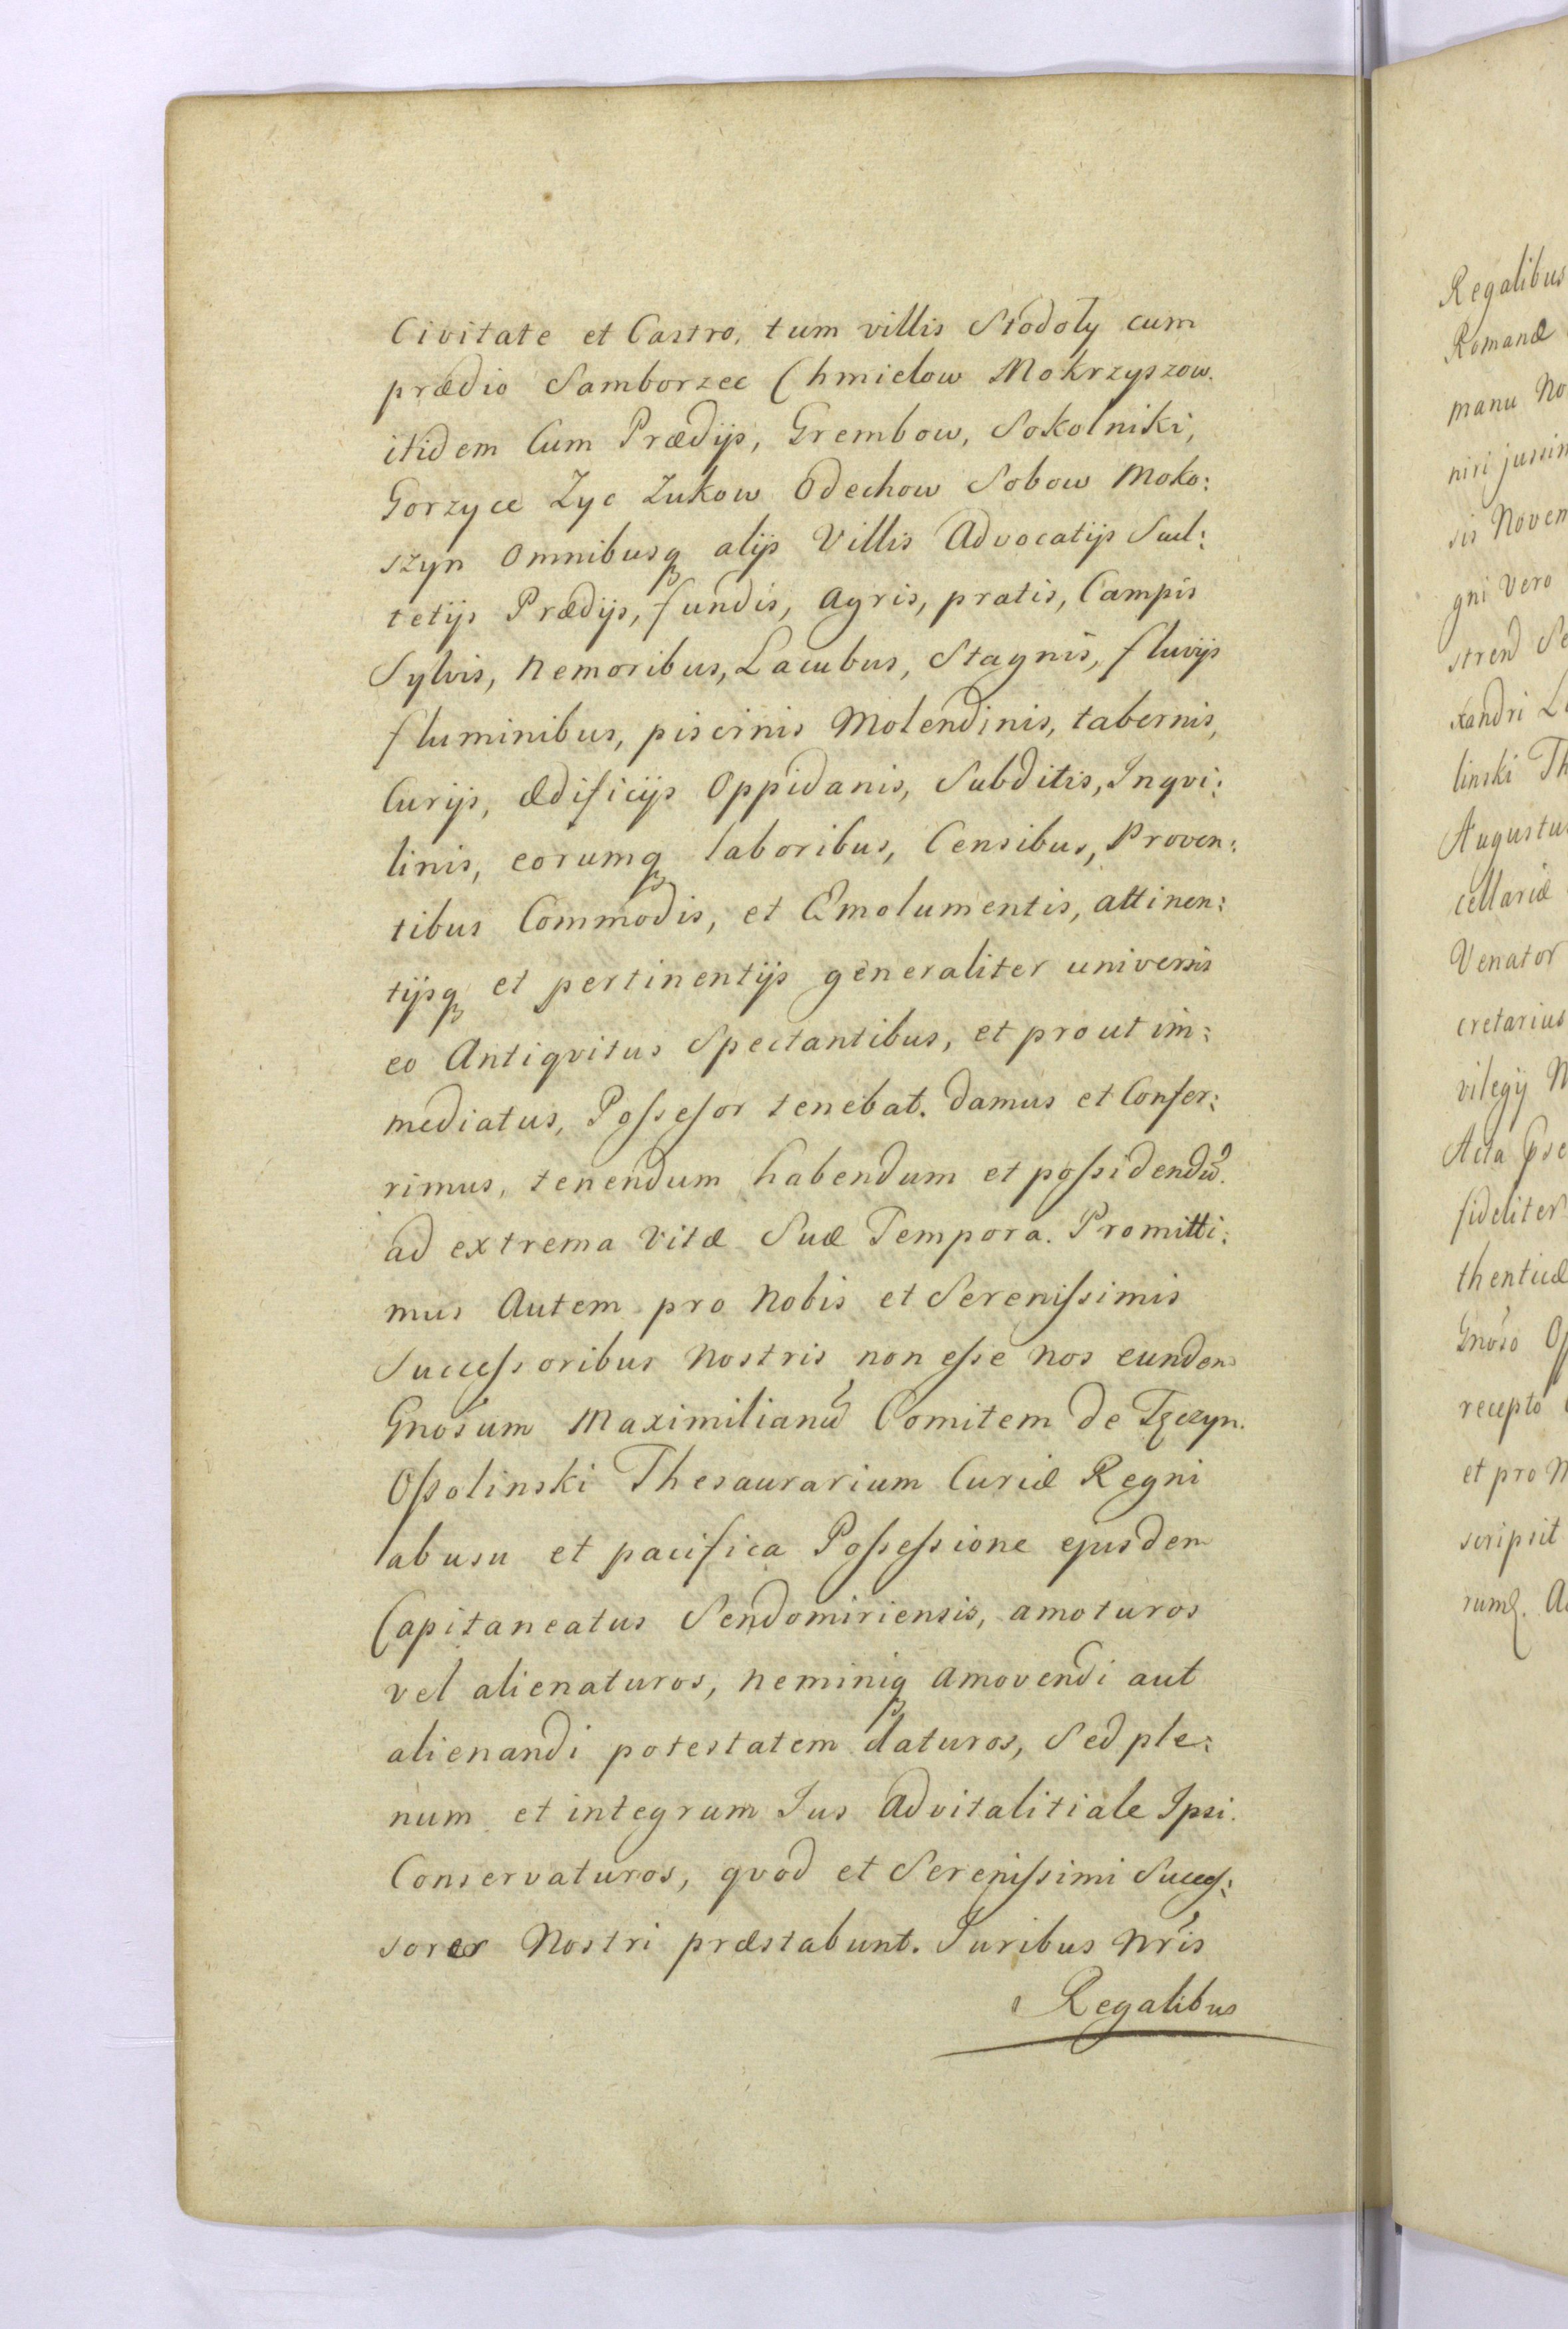 Civitate et Castro, tum villis Stodoły cum
prædio Samborzec Chmielow Mokrzyszow.
itidem Cum Prædijs, Grembow, Sokolniki,
Gorzyce Zyc Zukow Odechow Sobow Moko:
szyn Omnibusq alijs Villis Advocatijs Scul:
tetijs Prædijs, fundis, Agris, pratis, Campis
Sylvis, Nemoribus, Lacubus, Stagnis, fluvijs
fluminibus, piscinis Molendinis, tabernis,
Curijs, Ædificijs Oppidanis, Subditis, Inqvi:
linis, eorumq laboribus, Censibus, Proven:
tibus Commodis, et Emolumentis, attinen:
tijsq et pertinentijs generaliter universis
eo Antiqvitus Spectantibus, et prout im:
mediatus, Poſseſsor tenebat. damus et Confer:
rimus, tenendum habendum et poſsidendũ.
ad extrema Vitæ Suæ Tempora. Promitti:
mus Autem pro Nobis et Sereniſsimis
Succeſsoribus Nostris non eſse nos eundem
Gnosum Maximilianũ Comitem de Tęczyn.
Oſsolinski Thesaurarium Curiæ Regni
ab usu et pacifica Poſseſsione ejusdem
Capitaneatus Sendomiriensis, amoturos
vel alienaturos, neminiq amovendi aut
alienandi potestatem daturos, Sed ple:
num et integrum Jus Advitalitiale Ipsi.
Conservaturos, qvod et Sereniſsimi Succeſ:
sores Nostri præstabunt. Juribus Nris
Regalibus
Regalibus
Romanæ
manu No
niri jussim
sis Novem
gni Vero
strend Se
xandri
linski Th
Augustus
cellariæ
Venator
cretarius
vilegij N
Acta
fideliter
thenticæ
Gnoso
recepto
et pro N
scripsit